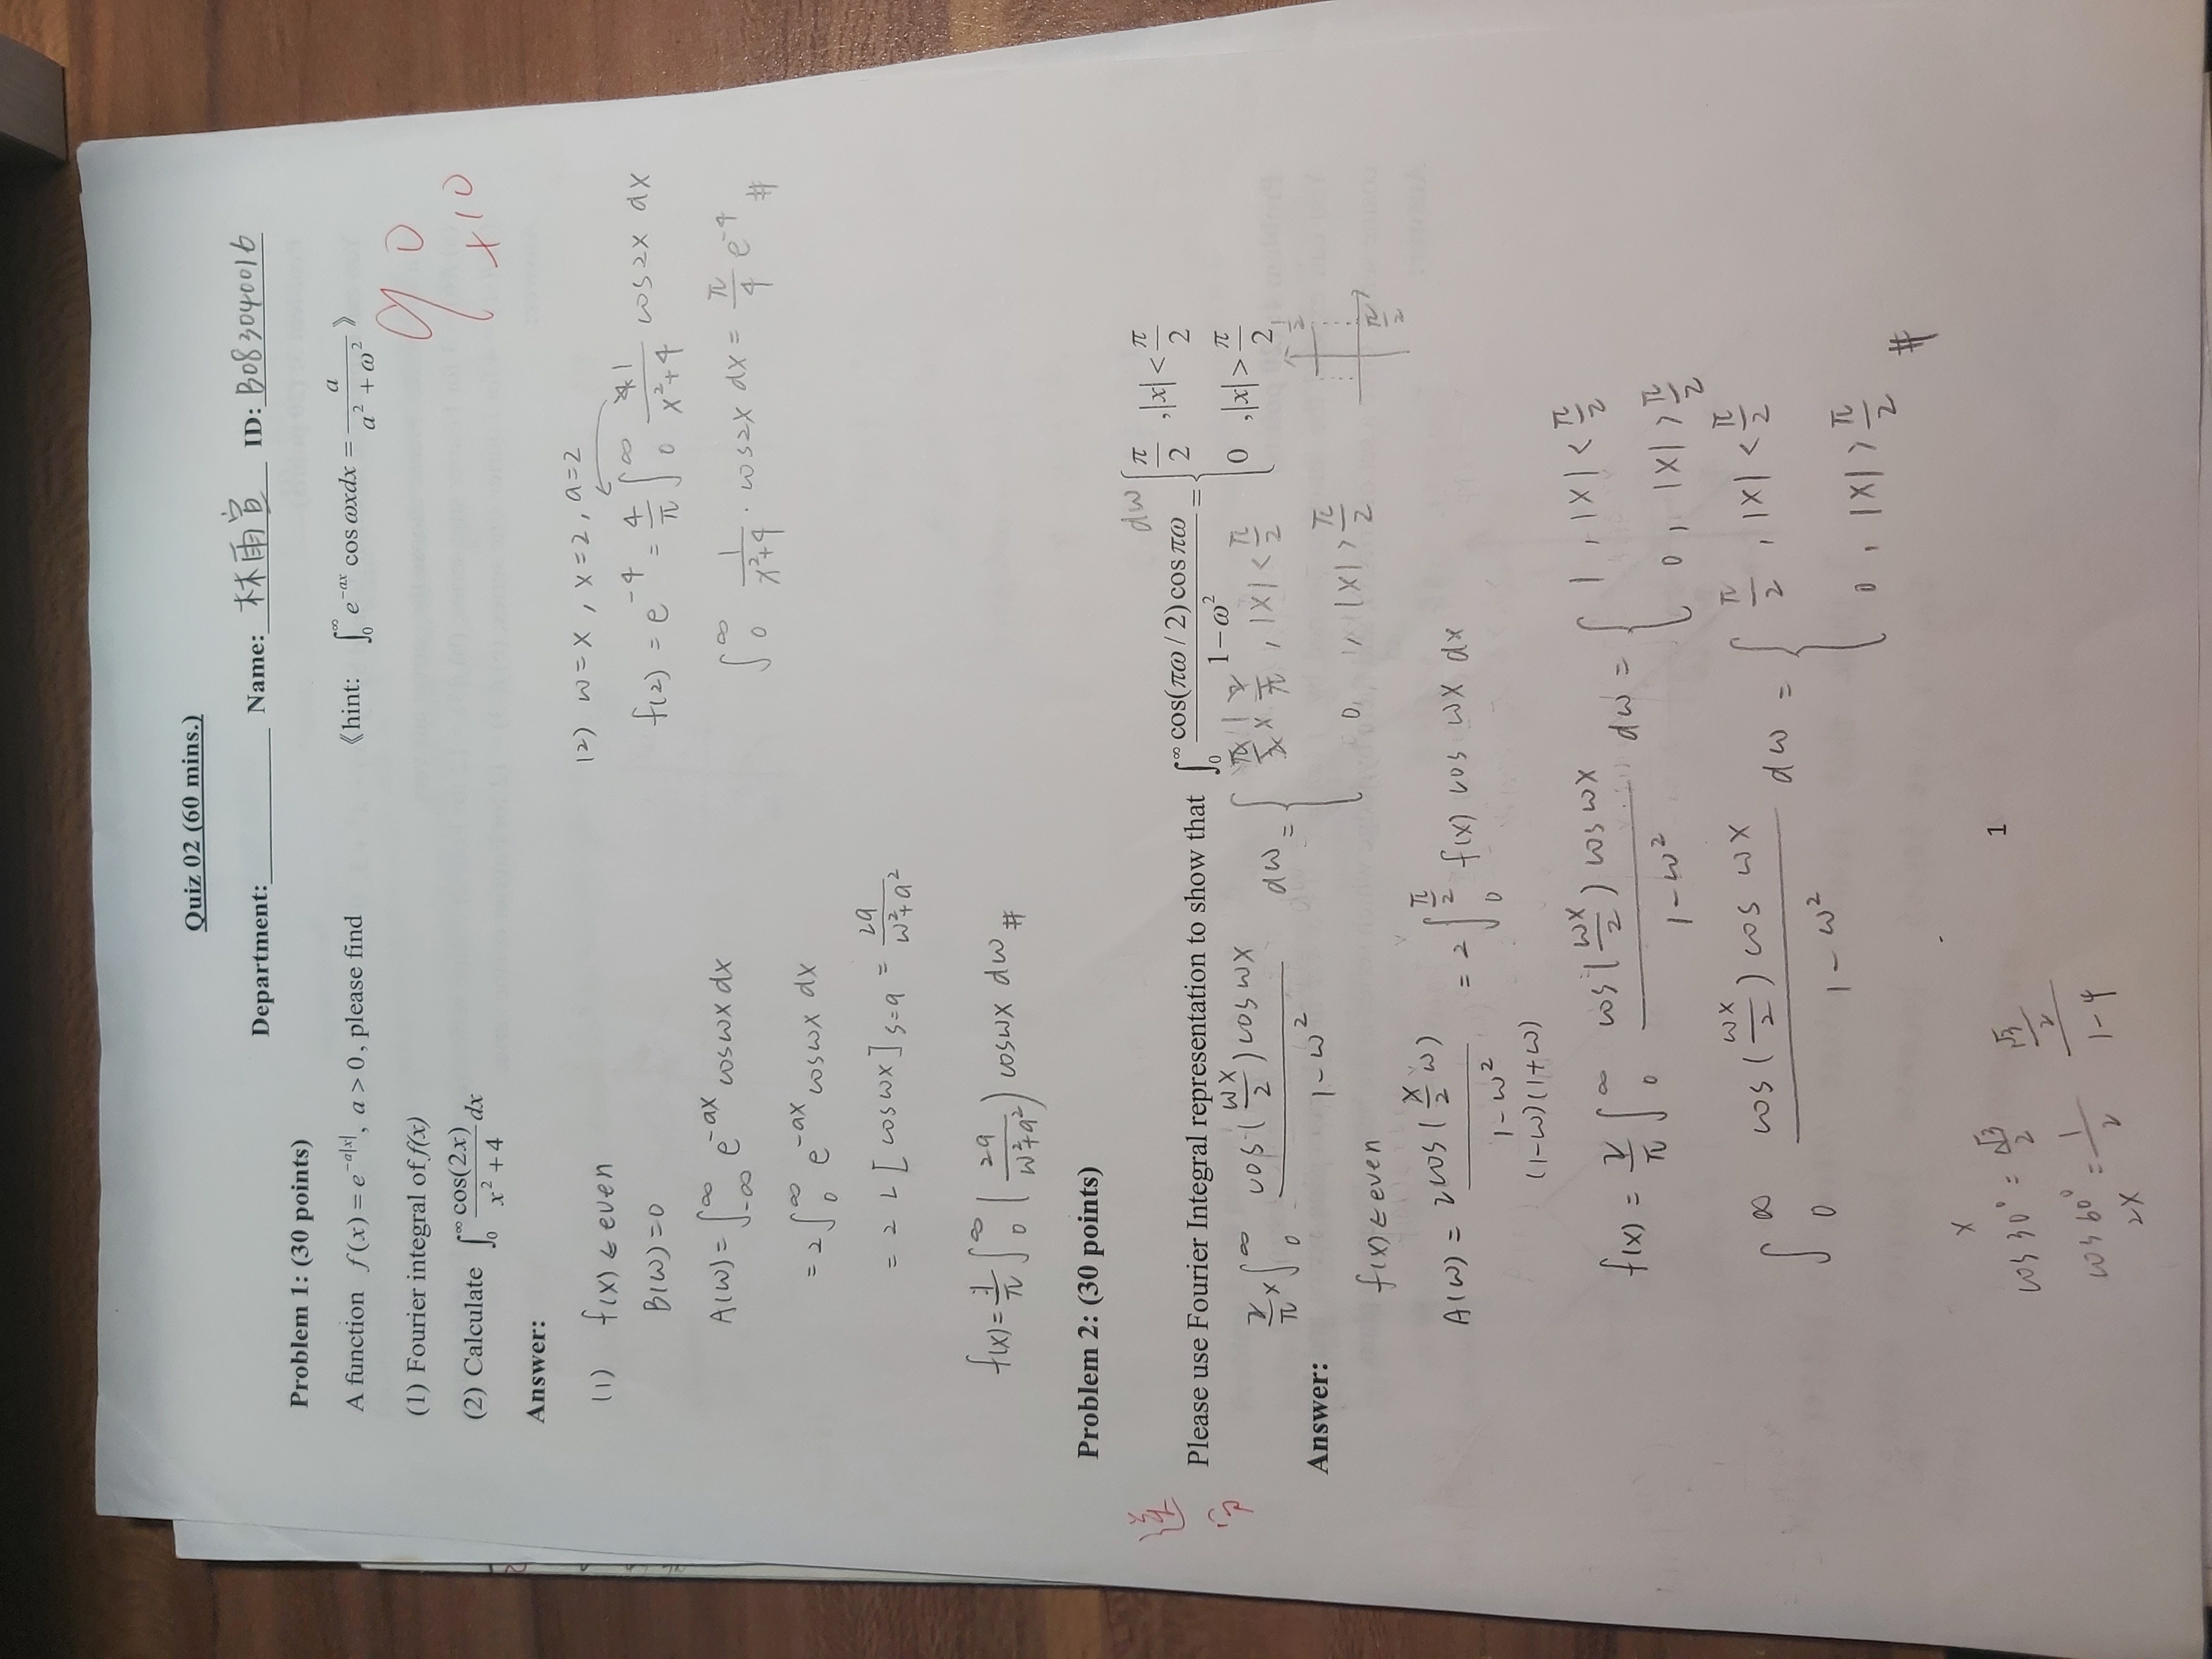 Quiz 02 (60 mins.)
Department:____________ Name: 林雨宣 ID: B083040016
Problem 1: (30 points)
A function f(x) = e^{-a|x|}, a > 0, please find 《hint: ∫_0^∞ e^{-ax} cos ωxdx = a/(a²+ω²) 》
90
+10
(1) Fourier integral of f(x)
(2) Calculate ∫_0^∞ cos(2x)/(x²+4) dx
Answer:
(1) f(x) ∈ even
B(w)=0
A(w) = ∫_{-∞}^∞ e^{-ax} coswx dx
= 2∫_0^∞ e^{-ax} coswx dx
= 2 L [coswx]_{s=a} = 2a/(w²+a²)
f(x) = 1/π ∫_0^∞ (2a/(w²+a²)) coswx dw #
(2) w=x , x=2, a=2
f(2) = e^{-4} = 4/π ∫_0^∞ 1/(x²+4) cos2x dx
∫_0^∞ 1/(x²+4) · cos2x dx = π/4 e^{-4} #
Problem 2: (30 points)
送
分
Please use Fourier Integral representation to show that ∫_0^∞ cos(πω/2)cos πω/(1−ω²) dω = { π/2 ,|x|<π/2
0 ,|x|>π/2
2/π × ∫_0^∞ cos(wx/2)coswx/(1-w²) dw = { π/2 × 2/π , |x|<π/2
0, , |x|>π/2
1/2
π/2
Answer:
f(x) ∈ even
A(w) = 2cos(x/2 w)/(1-w²) = 2∫_0^{π/2} f(x) cos wx dx
(1-w)(1+w)
f(x) = 2/π ∫_0^∞ cos(wx/2) coswx/(1-w²) dw = { 1 , |x|<π/2
0 , |x|>π/2
∫_0^∞ cos(wx/2) cos wx/(1-w²) dw = { π/2 , |x|<π/2
0 , |x|>π/2 #
x
cos30° = √3/2
cos60° = 1/2
2x
(√3/2)/(1-4)
1